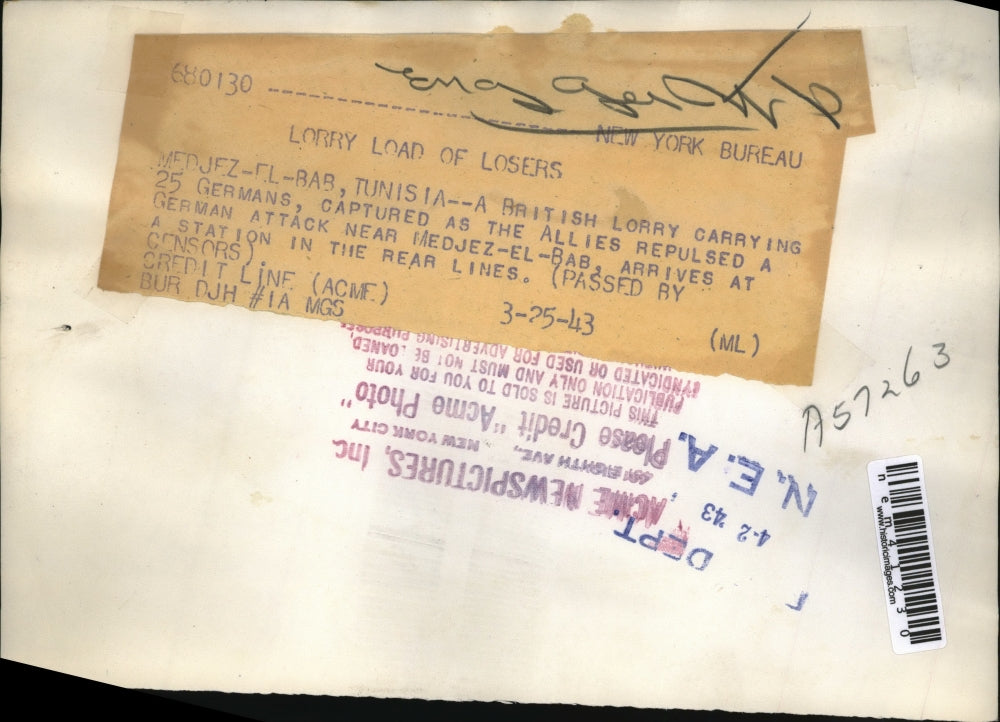 680130
NEW YORK BUREAU
LORRY LOAD OF LOSERS
MEDJEZ-EL-BAB, TUNISIA--A BRITISH LORRY CARRYING
25 GERMANS, CAPTURED AS THE ALLIES REPULSED A
GERMAN ATTACK NEAR MEDJEZ-EL-BAB, ARRIVES AT
A STATION IN THE REAR LINES. (PASSED BY
CENSORS).
CREDIT LINE (ACME) 3-25-43 (ML)
BUR DJH #1A MGS
A57263
ACME NEWSPICTURES, Inc.
461 EIGHTH AVE., NEW YORK CITY
Please Credit "Acme Photo"
THIS PICTURE IS SOLD TO YOU FOR YOUR
PUBLICATION ONLY AND MUST NOT BE LOANED,
SYNDICATED OR USED FOR ADVERTISING PURPOSES
DEPT.
4-2 '43
N. E. A.
nem41230
www.historicimages.com